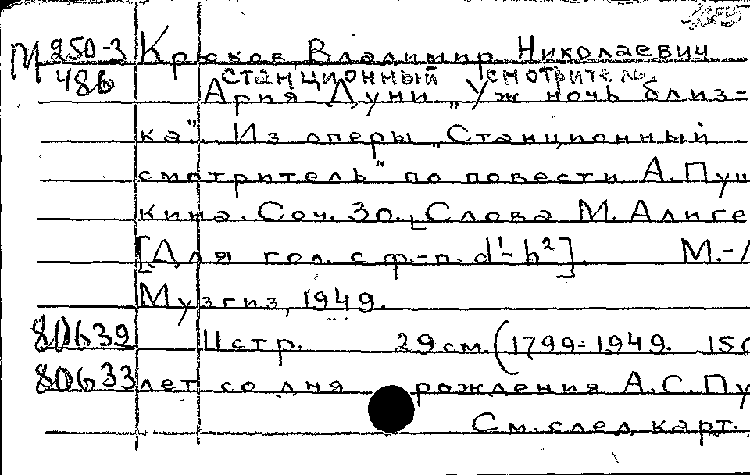 М 250-3 Крюков, Владимир Николаевич
486 Станционный смотритель
Ария Дуни „Уж ночь близ=
ка". Из оперы „Станционный
смотритель" по повести А. Пуш
кина. Соч. 30. Слова М. Алиге
[Для гол. с ф.-п. d¹-h²]. М.-Л
Музгиз, 1949.
80639 11 стр. 29 см. (1799-1949. 150
80633 лет со дня рождения А.С. Пу
См. след. карт.